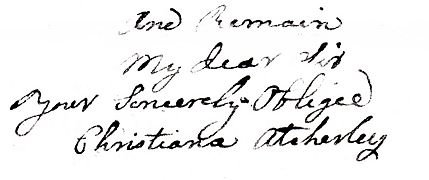 And Remain
My dear Sir
Your Sincerely Obliged
Christiana Atcherley